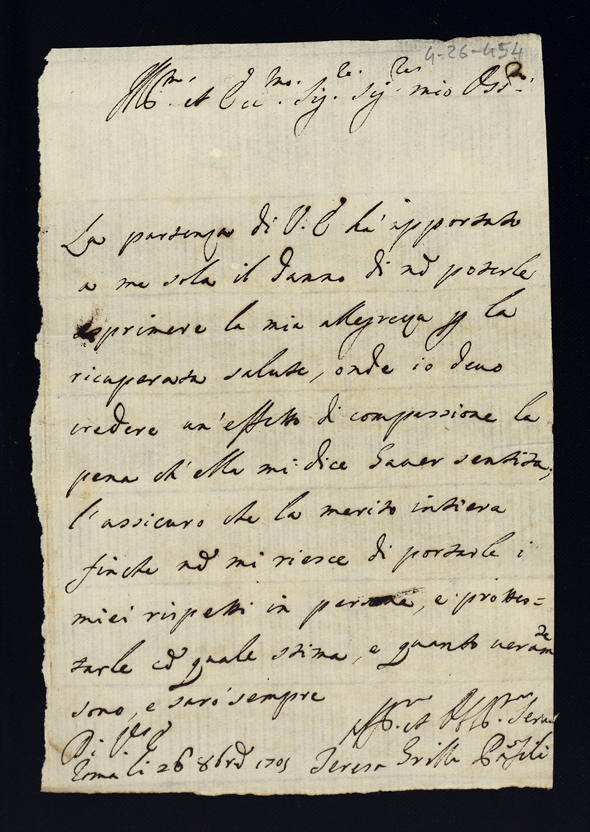 4-26-454
Ill.mo et Ecc.mo Sig.re Sig.re mio Oss.mo
La partenza di V. E. hà apportato
a me sola il danno di nõ poterle
esprimere la mia allegrezza p la
ricuperata salute, onde io devo
credere un'effetto di compassione la
pena ch'ella mi dice haver sentita;
l'assicuro che la merito intiera
finche nõ mi riesce di portarle i
miei rispetti in persona, e protes=
tarle cõ quale stima, e quanto veram.te
sono, e sarò sempre
Di V. E.
Roma li 26 8brẽ 1705
Aff.ma et Obb.ma Serva
Teresa Grilla Panfili